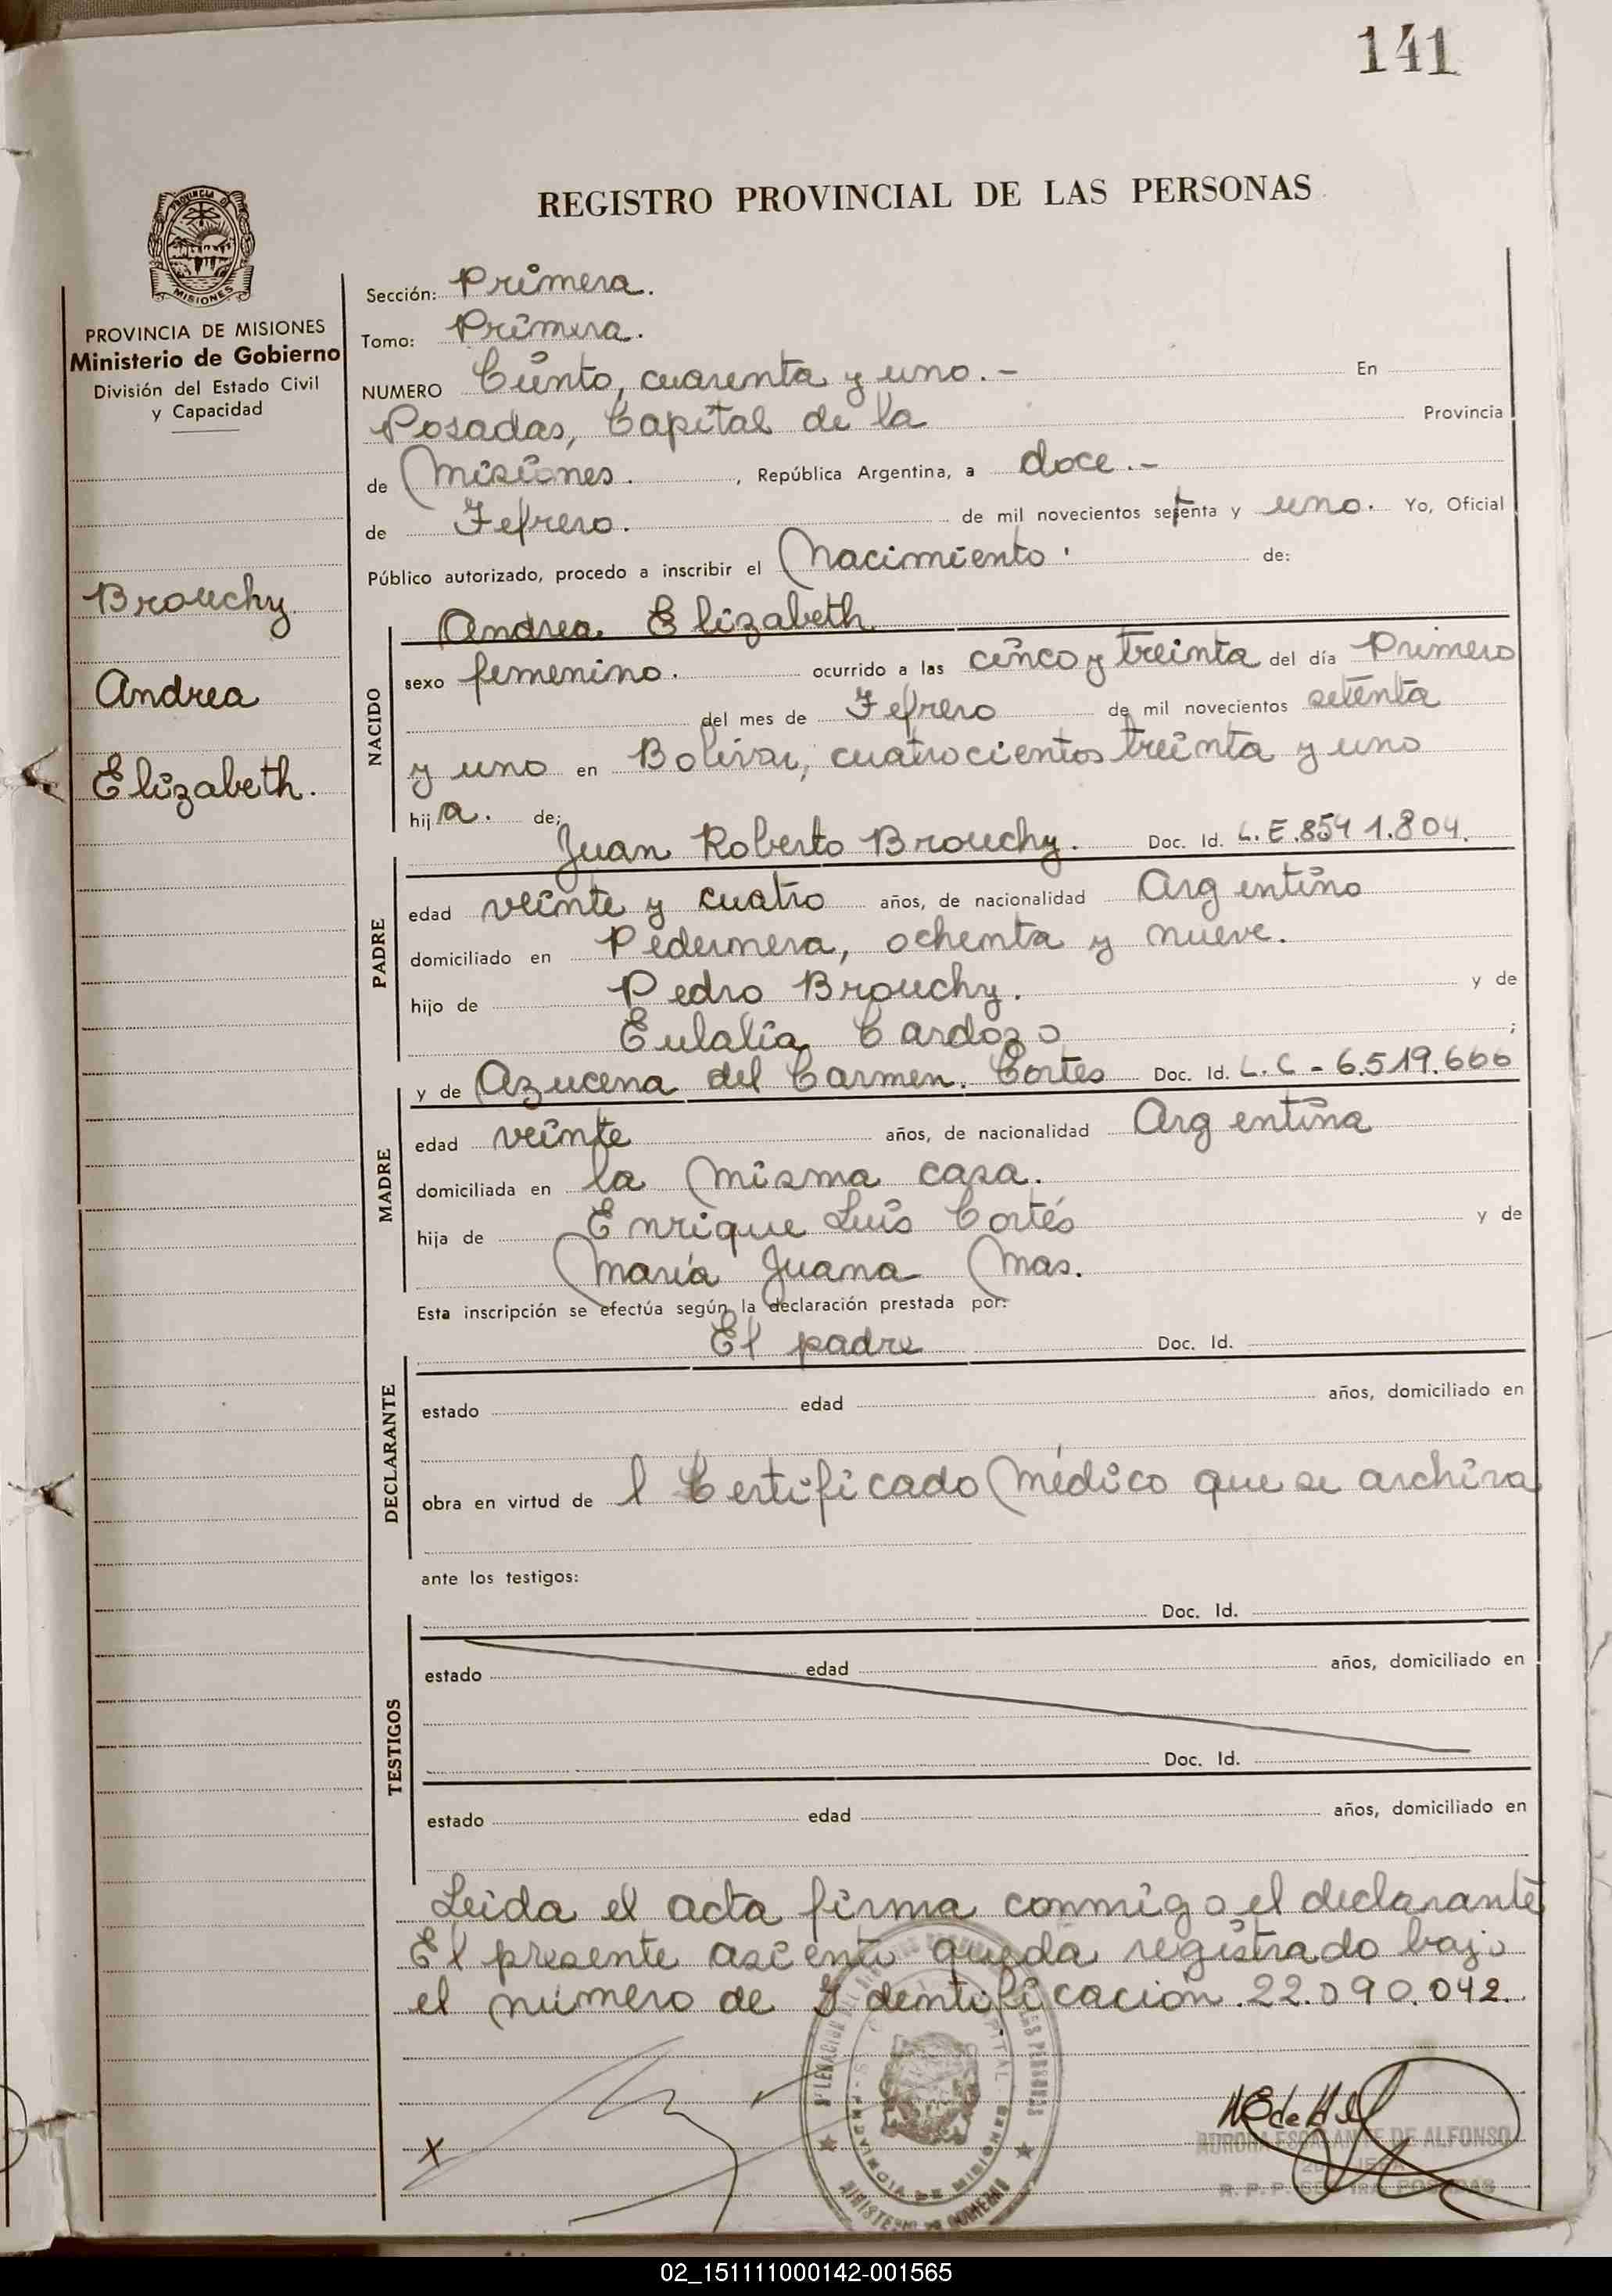 141
REGISTRO PROVINCIAL DE LAS PERSONAS
PROVINCIA DE
MISIONES
PROVINCIA DE MISIONES
Ministerio de Gobierno
División del Estado Civil
y Capacidad
Brouchy.
Andrea
Elizabeth.
Sección: Primera.
Tomo: Primera.
NUMERO Ciento, cuarenta y uno.- En
Posadas, Capital de la Provincia
de Misiones. , República Argentina, a doce.-
de Febrero. de mil novecientos setenta y uno. Yo, Oficial
Público autorizado, procedo a inscribir el Nacimiento. de:
Andrea Elizabeth
NACIDO
sexo femenino. ocurrido a las cinco y treinta del día Primero
del mes de Febrero de mil novecientos setenta
y uno en Bolívar, cuatrocientos treinta y uno
hija. de;
Juan Roberto Brouchy. Doc. Id. L.E.8541.804.
PADRE
edad veinte y cuatro años, de nacionalidad Argentino
domiciliado en Pedernera, ochenta y nueve.
hijo de Pedro Brouchy. y de
Eulalia Cardozo ;
y de Azucena del Carmen. Cortes Doc. Id. L.C - 6.519.666
MADRE
edad veinte años, de nacionalidad Argentina
domiciliada en la misma casa.
hija de Enrique Luis Cortés y de
María Juana Mas.
Esta inscripción se efectúa según la declaración prestada por:
El padre Doc. Id.
DECLARANTE
estado edad años, domiciliado en
obra en virtud de l Certificado Médico que se archiva
ante los testigos:
Doc. Id.
TESTIGOS
estado edad años, domiciliado en
Doc. Id.
estado edad años, domiciliado en
Leida el acta firma conmigo el declarante
El presente asiento queda registrado bajo
el número de Identificación 22.090.042.
X
PROVINCIA DE MISIONES
MINISTERIO DE GOBIERNO
AURORA ESCALANTE DE ALFONSO
02_151111000142-001565